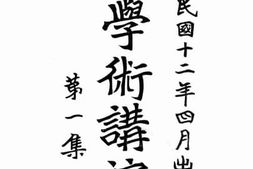 民國十二年四月出
學術講演
第一集